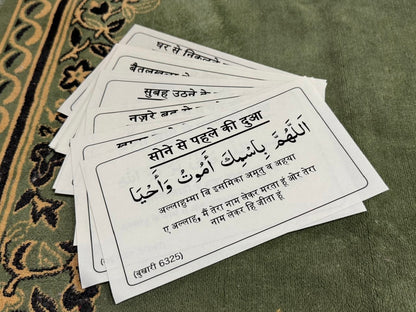 घर से निकलने
बैतलखला
सुबह उठने
नज़रे बद
सोने से पहले की दुआ
اَللّٰهُمَّ بِاسْمِكَ اَمُوْتُ وَاَحْيَا
अल्लाहुम्मा बि इसमिका अमूतु व अहया
ए अल्लाह, मैं तेरा नाम लेकर मरता हूं और तेरा
नाम लेकर हि जीता हूं
(बुखारी 6325)